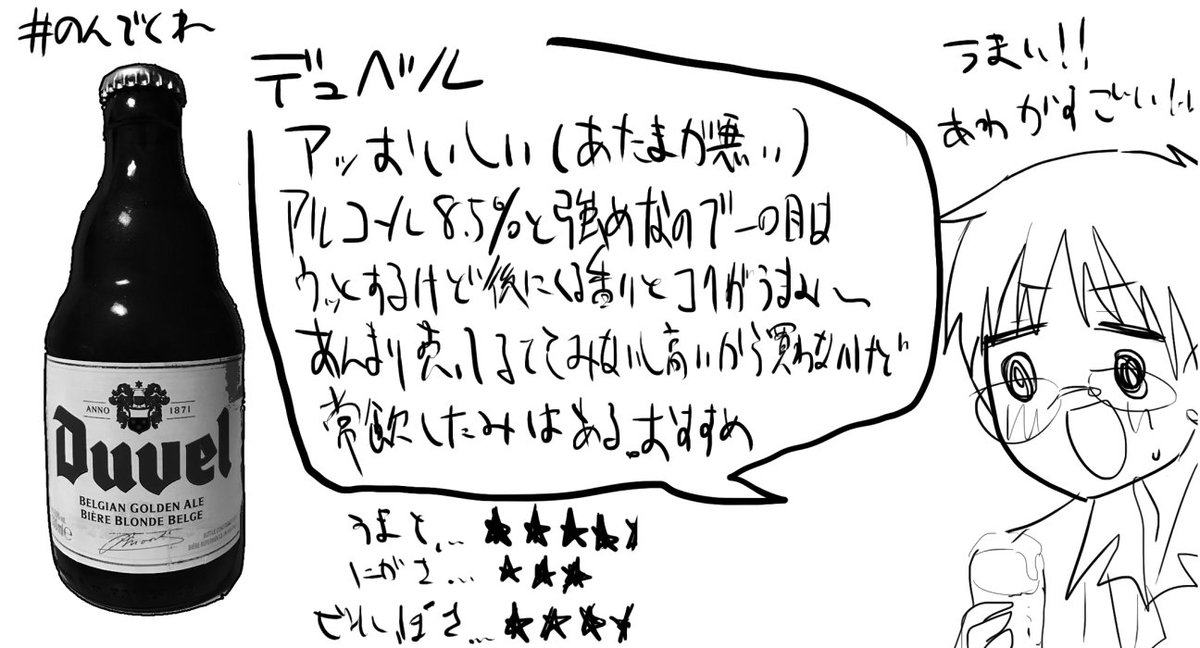 #のんでくれ
デュベル
アッおいしい(あたまが悪い)
アルコール8.5%と強めなので一口目は
ウッとするけど後にくる香りとコクがうまみ〜
あんまり売ってるてんみないし高いから買わないけど
常飲したみはある。おすすめ
うまさ… ★★★★
にがさ… ★★★
★★★
うまい!!
あわがすごい!!
ANNO 1871
Duvel
BELGIAN GOLDEN ALE
BIÈRE BLONDE BELGE